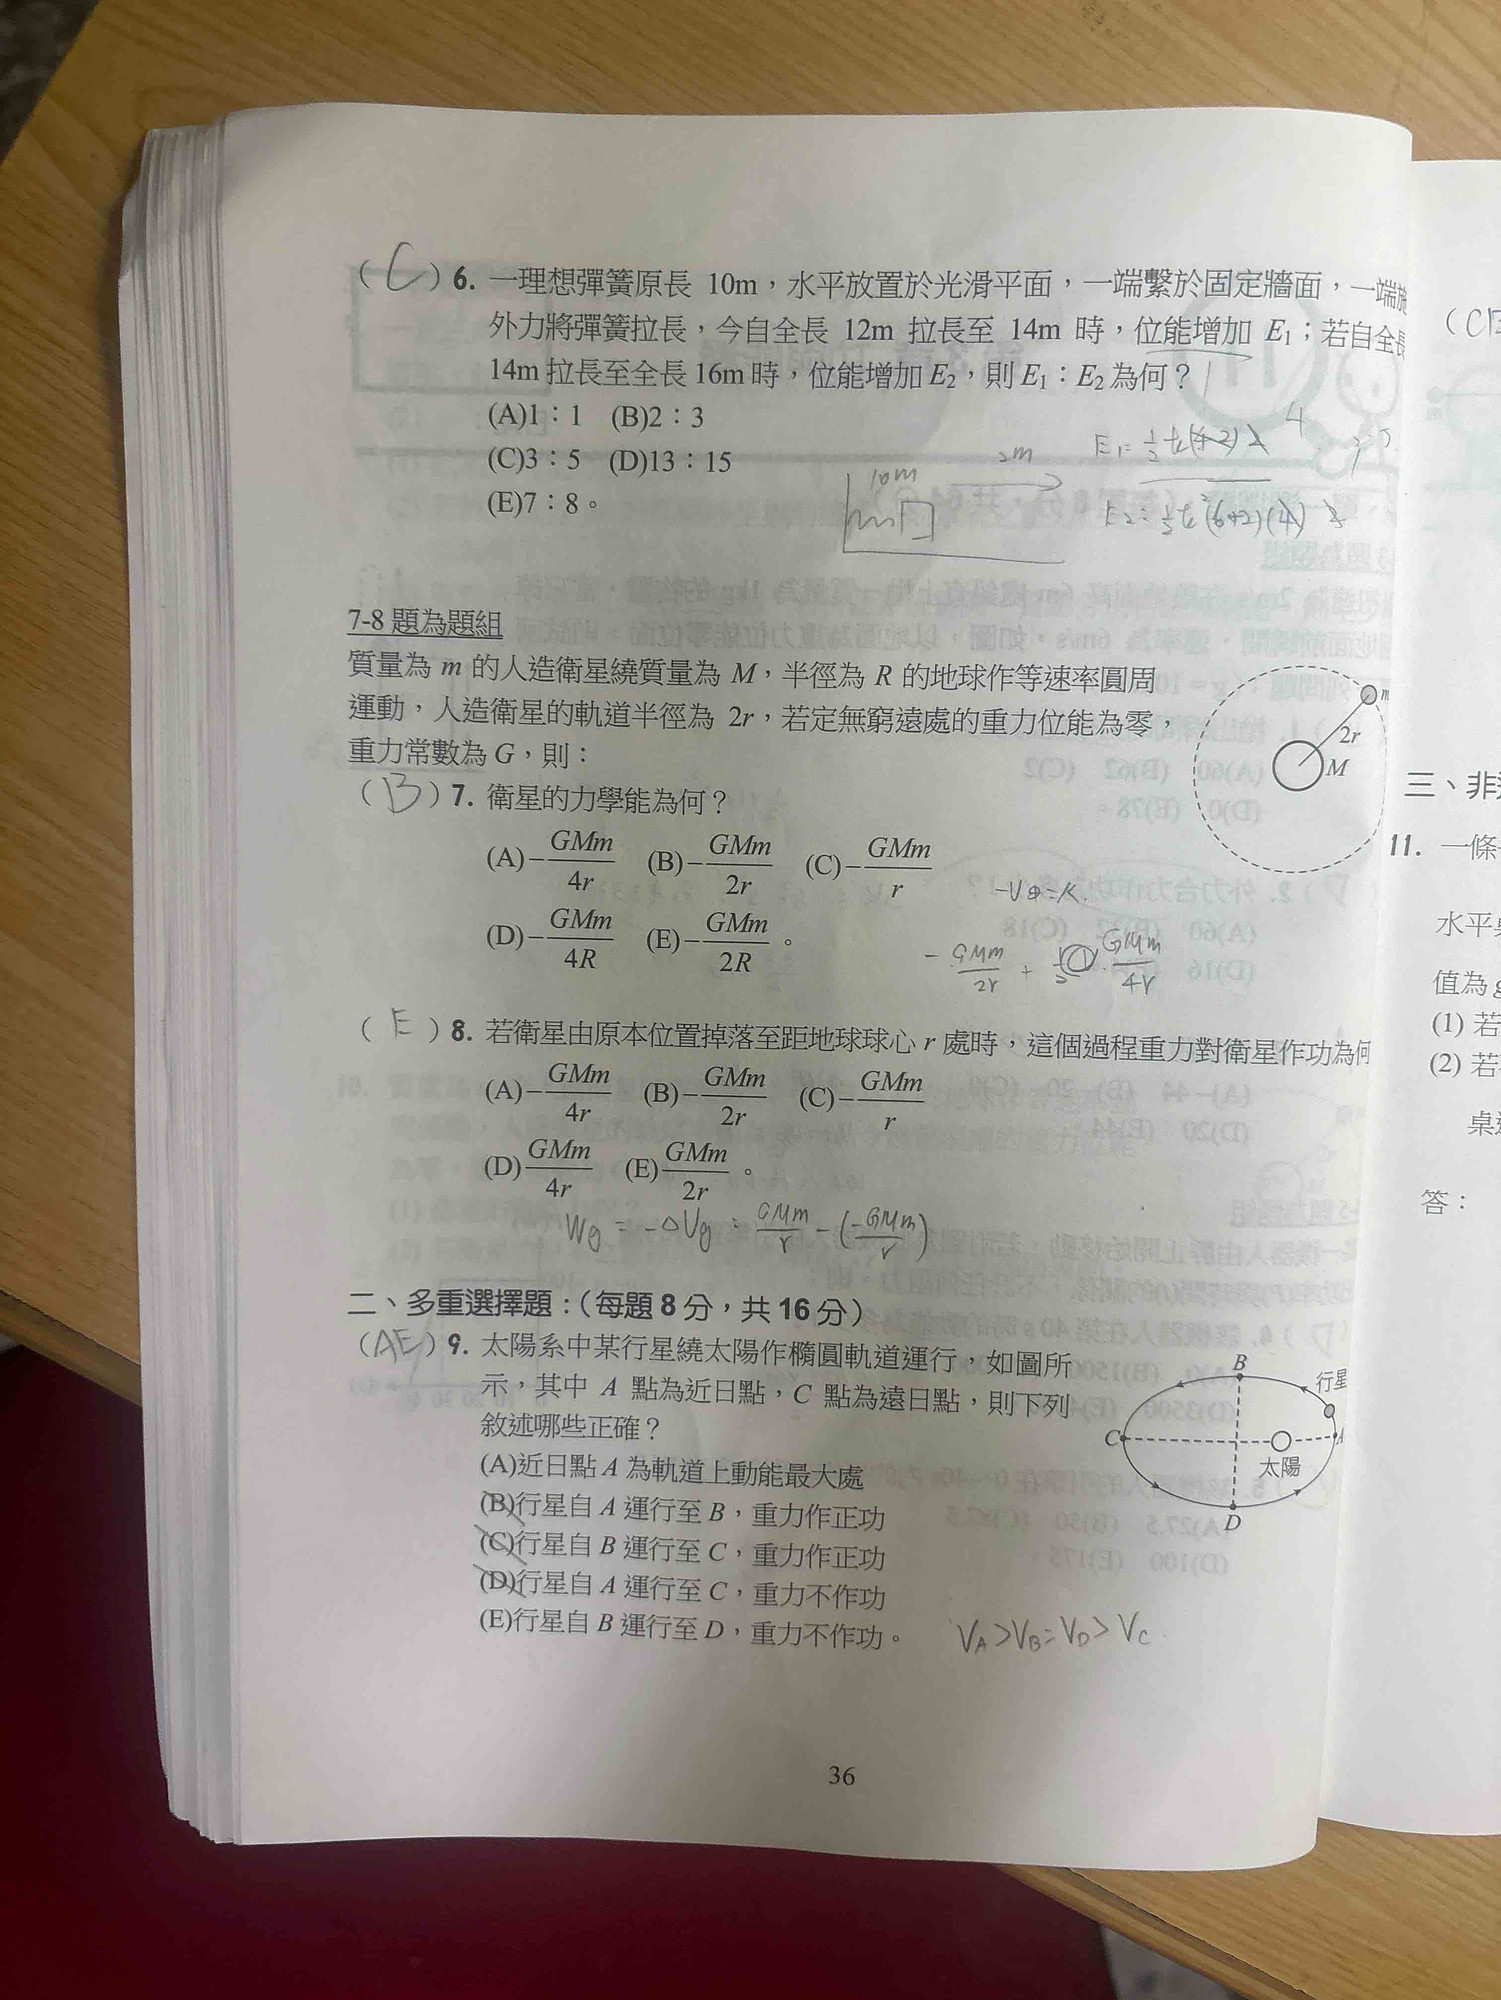 (C) 6. 一理想彈簧原長 10m，水平放置於光滑平面，一端繫於固定牆面，一端施
外力將彈簧拉長，今自全長 12m 拉長至 14m 時，位能增加 E₁；若自全長
14m 拉長至全長 16m 時，位能增加 E₂，則 E₁：E₂ 為何？
(A)1：1 (B)2：3
(C)3：5 (D)13：15
(E)7：8。
10m
2m
7-8 題為題組
質量為 m 的人造衛星繞質量為 M，半徑為 R 的地球作等速率圓周
運動，人造衛星的軌道半徑為 2r，若定無窮遠處的重力位能為零，
重力常數為 G，則：
m
2r
M
(B) 7. 衛星的力學能為何？
(A)−GMm/4r (B)−GMm/2r (C)−GMm/r
(D)−GMm/4R (E)−GMm/2R。
−GMm/2r + GMm/4r
(E) 8. 若衛星由原本位置掉落至距地球球心 r 處時，這個過程重力對衛星作功為何
(A)−GMm/4r (B)−GMm/2r (C)−GMm/r
(D)GMm/4r (E)GMm/2r。
Wg = −ΔUg = GMm/r − (−GMm/r)
二、多重選擇題：（每題 8 分，共 16 分）
(AE) 9. 太陽系中某行星繞太陽作橢圓軌道運行，如圖所
示，其中 A 點為近日點，C 點為遠日點，則下列
敘述哪些正確？
(A)近日點 A 為軌道上動能最大處
(B)行星自 A 運行至 B，重力作正功
(C)行星自 B 運行至 C，重力作正功
(D)行星自 A 運行至 C，重力不作功
(E)行星自 B 運行至 D，重力不作功。
B
行星
C
A
太陽
D
VA>VB=VD>VC
36
三、非
11. 一條
水平
值為 g
(1) 若
(2) 若
桌
答：